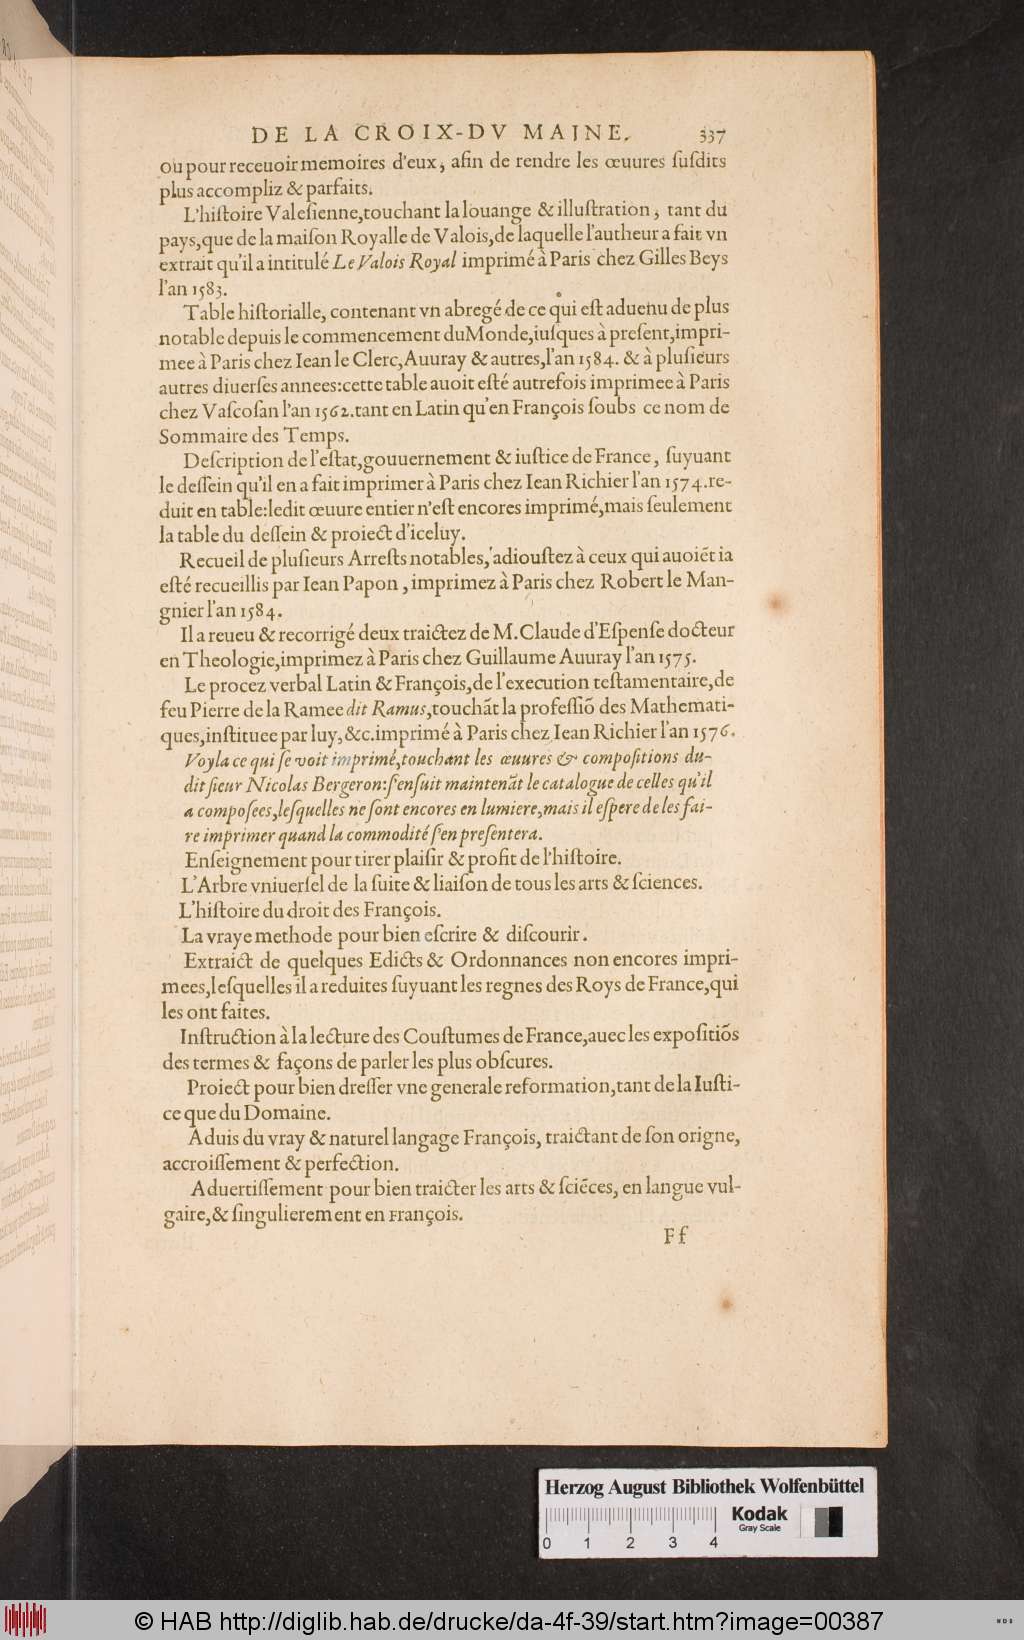 DE LA CROIX-DV MAINE. 337
ou pour receuoir memoires d'eux, afin de rendre les œuures ſuſdits
plus accompliz & parfaits.
L'hiſtoire Valeſienne, touchant la louange & illuſtration, tant du
pays, que de la maiſon Royalle de Valois, de laquelle l'autheur a fait vn
extrait qu'il a intitulé Le Valois Royal imprimé à Paris chez Gilles Beys
l'an 1583.
Table hiſtorialle, contenant vn abregé de ce qui eſt aduenu de plus
notable depuis le commencement du Monde, iuſques à preſent, impri-
mee à Paris chez Iean le Clerc, Auuray & autres, l'an 1584. & à pluſieurs
autres diuerſes annees: cette table auoit eſté autrefois imprimee à Paris
chez Vaſcoſan l'an 1562. tant en Latin qu'en François ſoubs ce nom de
Sommaire des Temps.
Deſcription de l'eſtat, gouuernement & iuſtice de France, ſuyuant
le deſſein qu'il en a fait imprimer à Paris chez Iean Richier l'an 1574. re-
duit en table: ledit œuure entier n'eſt encores imprimé, mais ſeulement
la table du deſſein & proiect d'iceluy.
Recueil de pluſieurs Arreſts notables, adiouſtez à ceux qui auoiẽt ia
eſté recueillis par Iean Papon, imprimez à Paris chez Robert le Man-
gnier l'an 1584.
Il a reueu & recorrigé deux traictez de M. Claude d'Eſpenſe docteur
en Theologie, imprimez à Paris chez Guillaume Auuray l'an 1575.
Le procez verbal Latin & François, de l'execution teſtamentaire, de
feu Pierre de la Ramee dit Ramus, touchãt la profeſſiõ des Mathemati-
ques, inſtituee par luy, &c. imprimé à Paris chez Iean Richier l'an 1576.
Voyla ce qui ſe voit imprimé, touchant les œuures & compoſitions du-
dit ſieur Nicolas Bergeron: ſ'enſuit maintenãt le catalogue de celles qu'il
a compoſees, leſquelles ne ſont encores en lumiere, mais il eſpere de les fai-
re imprimer quand la commodité ſ'en preſentera.
Enſeignement pour tirer plaiſir & profit de l'hiſtoire.
L'Arbre vniuerſel de la ſuite & liaiſon de tous les arts & ſciences.
L'hiſtoire du droit des François.
La vraye methode pour bien eſcrire & diſcourir.
Extraict de quelques Edicts & Ordonnances non encores impri-
mees, leſquelles il a reduites ſuyuant les regnes des Roys de France, qui
les ont faites.
Inſtruction à la lecture des Couſtumes de France, auec les expoſitiõs
des termes & façons de parler les plus obſcures.
Proiect pour bien dreſſer vne generale reformation, tant de la Iuſti-
ce que du Domaine.
Aduis du vray & naturel langage François, traictant de ſon origne,
accroiſſement & perfection.
Aduertiſſement pour bien traicter les arts & ſciẽces, en langue vul-
gaire, & ſingulierement en François.
Ff
Herzog August Bibliothek Wolfenbüttel
Kodak
Gray Scale
0 1 2 3 4
© HAB http://diglib.hab.de/drucke/da-4f-39/start.htm?image=00387